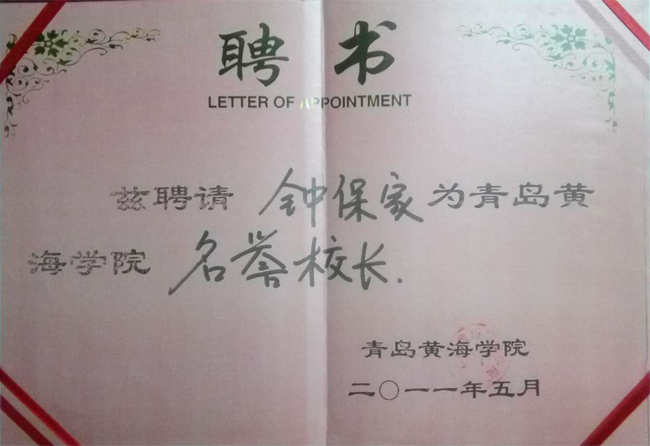 聘书
LETTER OF APPOINTMENT
兹聘请 钟保家 为青岛黄
海学院 名誉校长.
青岛黄海学院
二〇一一年五月